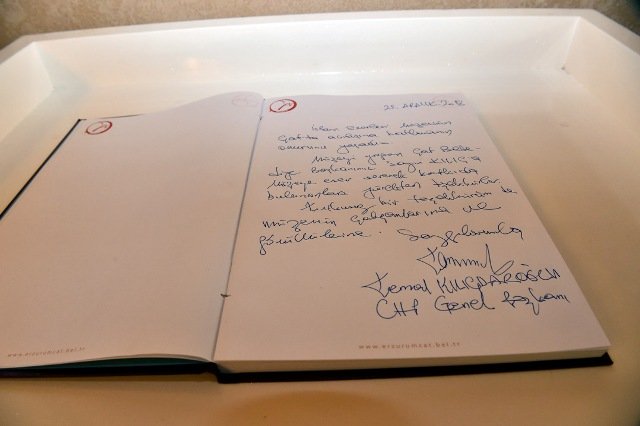 28 ARALIK 2018
İslam Eserleri Müzesinin
Çat'ta açılışına katılmanın
onurunu yaşadım.
Müzeyi yapan Çat Bele-
diye Başkanımız Sayın KILIÇ'a
Müzeye eser vererek katkıda
bulunanlara yürekten teşekkürler.
bir teşekkürüm de
müzenin çalışanlarına ve
gönüllülerine. Saygılarımla
Kemal KILIÇDAROĞLU
CHP Genel Başkanı
www.erzurumcat.bel.tr
www.erzurumcat.bel.tr